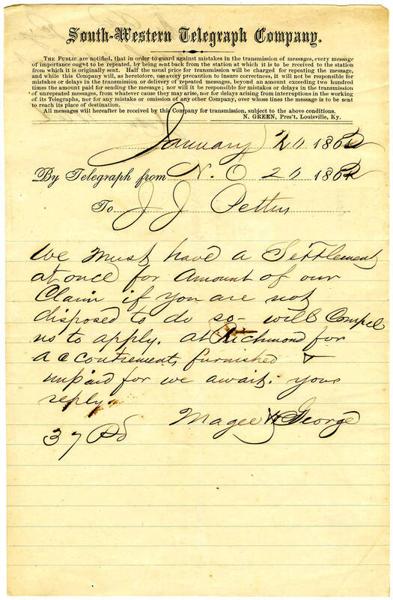 South-Western Telegraph Company.
THE PUBLIC are notified, that in order to guard against mistakes in the transmission of messages, every message
of importance ought to be repeated, by being sent back from the station at which it is to be received to the station
from which it is originally sent. Half the usual price for transmission will be charged for repeating the message,
and while this Company will, as heretofore, use every precaution to insure correctness, it will not be responsible for
mistakes or delays in the transmission or delivery of repeated messages, beyond an amount exceeding two hundred
times the amount paid for sending the message; nor will it be responsible for mistakes or delays in the transmission
of unrepeated messages, from whatever cause they may arise, nor for delays arising from interruptions in the working
of its Telegraphs, nor for any mistake or omission of any other Company, over whose lines the message is to be sent
to reach its place of destination.
All messages will hereafter be received by this Company for transmission, subject to the above conditions.
N. GREEN, Pres't, Louisville, Ky.
January 20 1862
By Telegraph from N. O 20 1862
To J J Pettus
We must have a Settlement
at once for amount of our
Claim if you are not
disposed to do so - will Compel
us to apply. at Richmond for
accoutrements furnished &
unpaid for we await. your
reply.
Magee & George
37 Pd